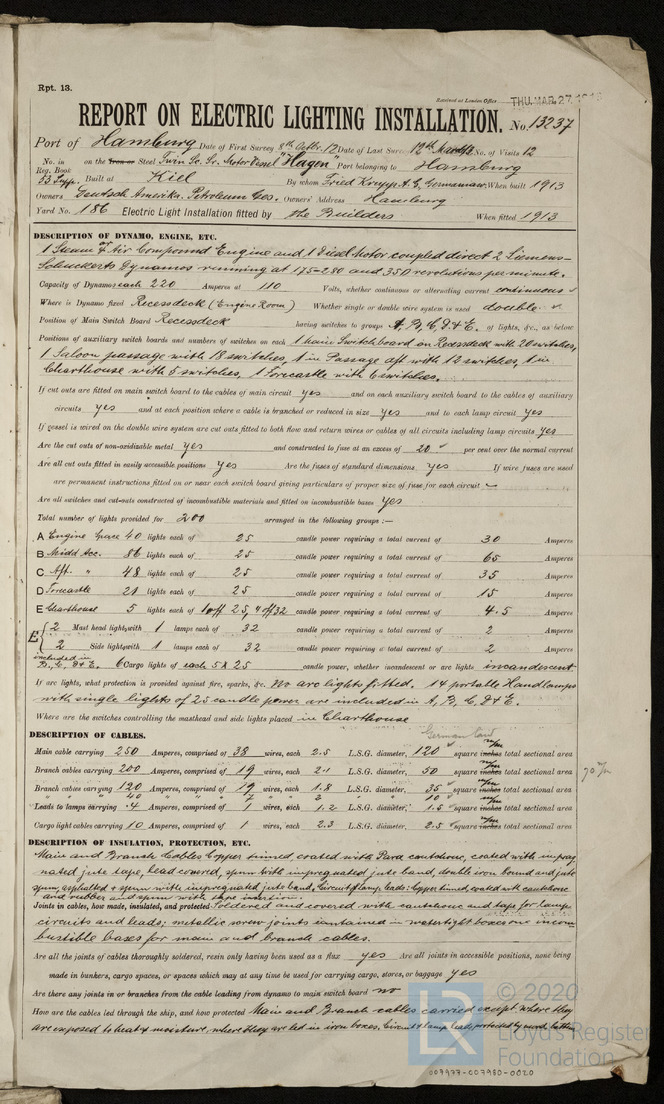 Rpt. 13.
Received at London Office THU. MAR. 27 1913
REPORT ON ELECTRIC LIGHTING INSTALLATION. No. 13237
Port of Hamburg Date of First Survey 8th Octbr. 12 Date of Last Survey 12th March No. of Visits 12
No. in Reg. Book 33 Supp. on the Iron or Steel Twin Sc. Sr. Motor Vessel "Hagen" Port belonging to Hamburg
Built at Kiel By whom Fried Krupp A.G. Germaniaw. When built 1913
Owners Deutsch Amerika. Petroleum Ges. Owners' Address Hamburg
Yard No. 186 Electric Light Installation fitted by the Builders When fitted 1913
DESCRIPTION OF DYNAMO, ENGINE, ETC.
1 Steam or Air Compound Engine and 1 Diesel Motor coupled direct 2 Siemens-
Schuckerts Dynamos running at 175-280 and 350 revolutions per minute.
Capacity of Dynamo each 220 Amperes at 110 Volts, whether continuous or alternating current continuous
Where is Dynamo fixed Recessdeck (Engine Room) Whether single or double wire system is used double
Position of Main Switch Board Recessdeck having switches to groups A, B, C, D & E. of lights, &c., as below
Positions of auxiliary switch boards and numbers of switches on each 1 main Switchboard on Recessdeck with 20 switches,
1 Saloon passage with 18 switches, 1 in Passage aft with 12 switches, 1 in
Charthouse with 5 switches, 1 Forecastle with 6 switches.
If cut outs are fitted on main switch board to the cables of main circuit yes and on each auxiliary switch board to the cables of auxiliary
circuits yes and at each position where a cable is branched or reduced in size yes and to each lamp circuit yes
If vessel is wired on the double wire system are cut outs fitted to both flow and return wires or cables of all circuits including lamp circuits yes
Are the cut outs of non-oxidizable metal yes and constructed to fuse at an excess of 20 per cent over the normal current
Are all cut outs fitted in easily accessible positions yes Are the fuses of standard dimensions yes If wire fuses are used
are permanent instructions fitted on or near each switch board giving particulars of proper size of fuse for each circuit -
Are all switches and cut-outs constructed of incombustible materials and fitted on incombustible bases yes
Total number of lights provided for 200 arranged in the following groups :—
A Engine Space 40 lights each of 25 candle power requiring a total current of 30 Amperes
B Midd Acc. 86 lights each of 25 candle power requiring a total current of 65 Amperes
C Aft. " 48 lights each of 25 candle power requiring a total current of 35 Amperes
D Forecastle 21 lights each of 25 candle power requiring a total current of 15 Amperes
E Charthouse 5 lights each of 1 off 25, 4 off 32 candle power requiring a total current of 4.5 Amperes
E 2 Mast head lights with 1 lamps each of 32 candle power requiring a total current of 2 Amperes
2 Side lights with 1 lamps each of 32 candle power requiring a total current of 2 Amperes
included in
B, C, D & E. 6 Cargo lights of each 5 x 25 candle power, whether incandescent or arc lights incandescent
If arc lights, what protection is provided against fire, sparks, &c. No arc lights fitted. 14 portable Handlamps
with single lights of 25 candle power are included in A, B, C, D & E.
Where are the switches controlling the masthead and side lights placed in Charthouse
DESCRIPTION OF CABLES.
Main cable carrying 250 Amperes, comprised of 38 wires, each 2.5 L.S.G. diameter, 120 square inches m/m total sectional area
Branch cables carrying 200 Amperes, comprised of 19 wires, each 2.1 L.S.G. diameter, 50 square inches m/m total sectional area 70 m/m
Branch cables carrying 120 Amperes, comprised of 19 wires, each 1.8 L.S.G. diameter, 35 square inches m/m total sectional area
" " 40 " " 7 " 2 " 10
Leads to lamps carrying .4 Amperes, comprised of 1 wires, each 1.2 L.S.G. diameter, 1.5 square inches m/m total sectional area
Cargo light cables carrying 10 Amperes, comprised of 1 wires, each 2.3 L.S.G. diameter, 2.5 square inches m/m total sectional area
DESCRIPTION OF INSULATION, PROTECTION, ETC.
Main and Branch Cables Copper tinned coated with Para cautchouc, coated with impreg
nated jute tape, lead covered, spun with impregnated jute band, double iron bound and jute
spun, asphalted & spun with impregnated jute band, Circuit & lamp leads: Copper tinned coated with cautchouc
and rubber and spun with tape insertion.
Joints in cables, how made, insulated, and protected Soldered and covered with cautchouc and tape for lamp
circuits and leads; metallic screw joints contained in watertight boxes on incom
bustible bases for main and branch cables.
Are all the joints of cables thoroughly soldered, resin only having been used as a flux yes Are all joints in accessible positions, none being
made in bunkers, cargo spaces, or spaces which may at any time be used for carrying cargo, stores, or baggage yes
Are there any joints in or branches from the cable leading from dynamo to main switch board no
How are the cables led through the ship, and how protected Main and Branch cables carried except where they
are exposed to heat & moisture, where they are led in iron boxes, Circuit & lamp leads, protected by wood batten
© 2020
Lloyd's Register
Foundation
LR
007977-007980-0020